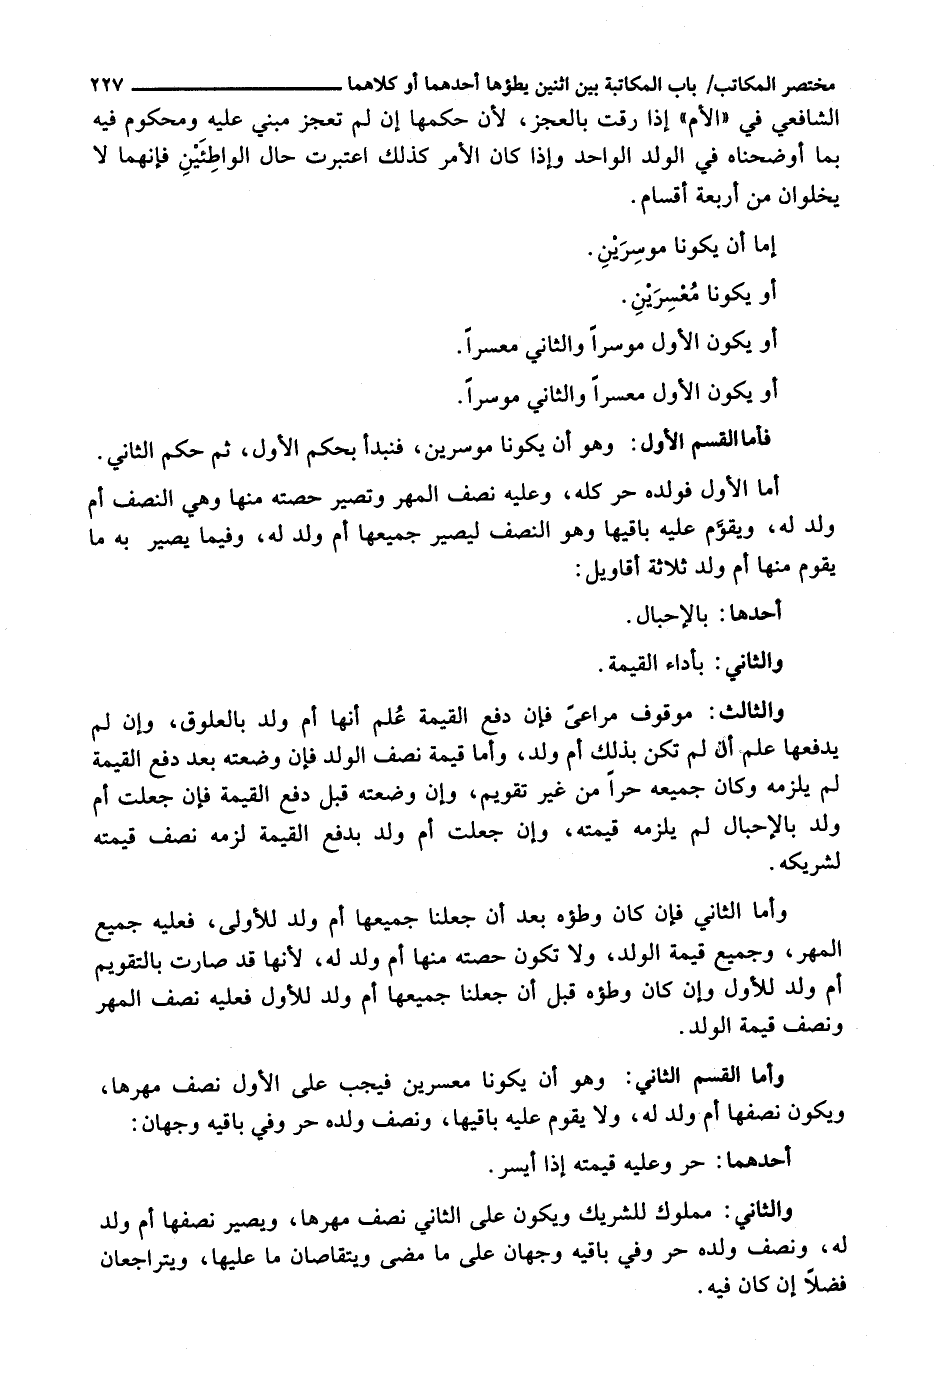 مختصر المكاتب/ باب المكاتبة بين اثنين يطؤها أحدهما أو كلاهما ٢٢٧
الشافعي في «الأم» إذا رقت بالعجز، لأن حكمها إن لم تعجز مبني عليه ومحكوم فيه
بما أوضحناه في الولد الواحد وإذا كان الأمر كذلك اعتبرت حال الواطِئَيْنِ فإنهما لا
يخلوان من أربعة أقسام.
إما أن يكونا موسِرَيْنِ.
أو يكونا مُعْسِرَيْنِ.
أو يكون الأول موسراً والثاني معسراً.
أو يكون الأول معسراً والثاني موسراً.
فأما القسم الأول: وهو أن يكونا موسرين، فنبدأ بحكم الأول، ثم حكم الثاني.
أما الأول فولده حر كله، وعليه نصف المهر وتصير حصته منها وهي النصف أم
ولد له، ويقوَّم عليه باقيها وهو النصف ليصير جميعها أم ولد له، وفيما يصير به ما
يقوم منها أم ولد ثلاثة أقاويل:
أحدها: بالإحبال.
والثاني: بأداء القيمة.
والثالث: موقوف مراعىً فإن دفع القيمة عُلم أنها أم ولد بالعلوق، وإن لم
يدفعها علم أن لم تكن بذلك أم ولد، وأما قيمة نصف الولد فإن وضعته بعد دفع القيمة
لم يلزمه وكان جميعه حراً من غير تقويم، وإن وضعته قبل دفع القيمة فإن جعلت أم
ولد بالإحبال لم يلزمه قيمته، وإن جعلت أم ولد بدفع القيمة لزمه نصف قيمته
لشريكه.
وأما الثاني فإن كان وطؤه بعد أن جعلنا جميعها أم ولد للأولى، فعليه جميع
المهر، وجميع قيمة الولد، ولا تكون حصته منها أم ولد له، لأنها قد صارت بالتقويم
أم ولد للأول وإن كان وطؤه قبل أن جعلنا جميعها أم ولد للأول فعليه نصف المهر
ونصف قيمة الولد.
وأما القسم الثاني: وهو أن يكونا معسرين فيجب على الأول نصف مهرها،
ويكون نصفها أم ولد له، ولا يقوم عليه باقيها، ونصف ولده حر وفي باقيه وجهان:
أحدهما: حر وعليه قيمته إذا أيسر.
والثاني: مملوك للشريك ويكون على الثاني نصف مهرها، ويصير نصفها أم ولد
له، ونصف ولده حر وفي باقيه وجهان على ما مضى ويتقاصان ما عليها، ويتراجعان
فضلاً إن كان فيه.